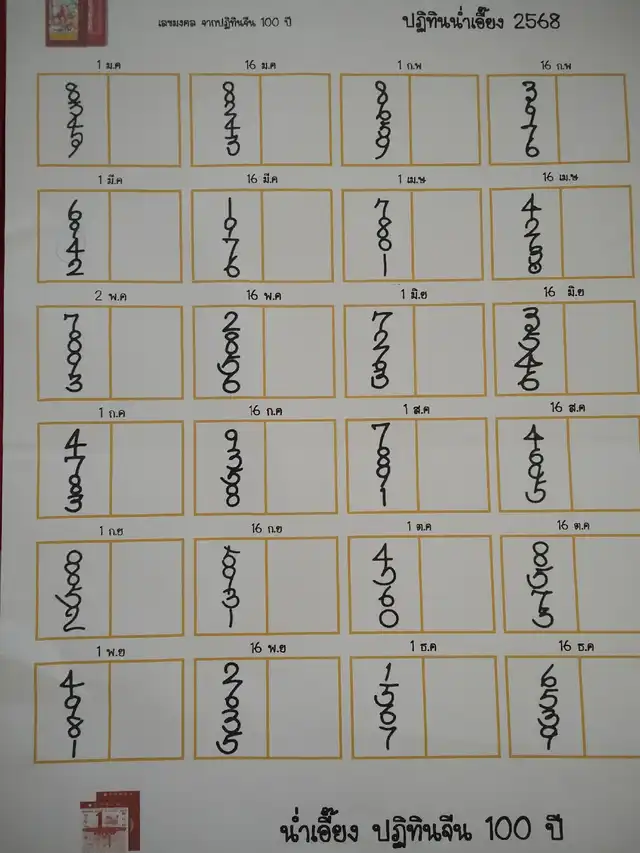 เลขมงคล จากปฏิทินจีน 100 ปี
ปฏิทินน่ำเอี๊ยง 2568
1 ม.ค 16 ม.ค 1 ก.พ 16 ก.พ
8 8 8 3
3 2 6 9
4 4 8 7
5 3 9 6
9
1 มี.ค 16 มี.ค 1 เม.ษ 16 เม.ษ
6 1 7 4
9 9 8 2
4 7 0
2 6 1 8
2 พ.ค 16 พ.ค 1 มิ.ย 16 มิ.ย
7 2 7 3
8 8 2 5
9 5 4
3 6 6
1 ก.ค 16 ก.ค 1 ส.ค 16 ส.ค
4 9 7 4
7 3 8 6
8 5 9 9
3 8 1 5
1 ก.ย 16 ก.ย 1 ต.ค 16 ต.ค
8 4 8
8 9 5 5
5 3 6 7
2 1 0 5
1 พ.ย 16 พ.ย 1 ธ.ค 16 ธ.ค
4 2 1 6
9 6 5 5
8 3 6 3
1 5 7 9
น่ำเอี๊ยง ปฏิทินจีน 100 ปี